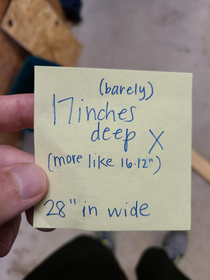 (barely)
17 inches
deep X
(more like 16.12")
28" in wide